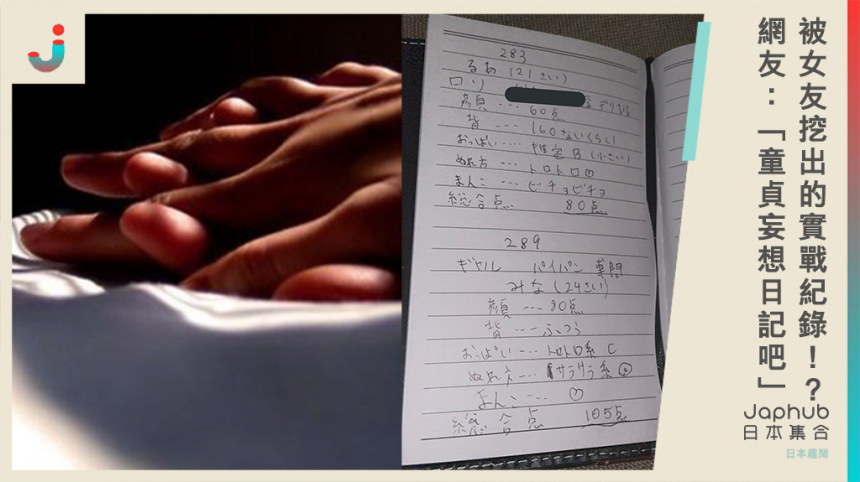 被女友挖出的實戰紀錄！？
網友：「童貞妄想日記吧」
Japhub
日本集合
日本趣聞
283
(21さい)
ロリ デリヘル
顔 --- 60点
背 --- 160ないくらい
おっぱい --- 推定B (小さい)
ぬれ方 --- トロトロ
まんこ --- ビチョビチョ
総合点 80点
289
ギャル パイパン 専門
みな (24さい)
顔 --- 80点
背 --- ふつう
おっぱい --- トロトロ系 C
ぬれ方 --- サラサラ系
まんこ ---
総合点 105点